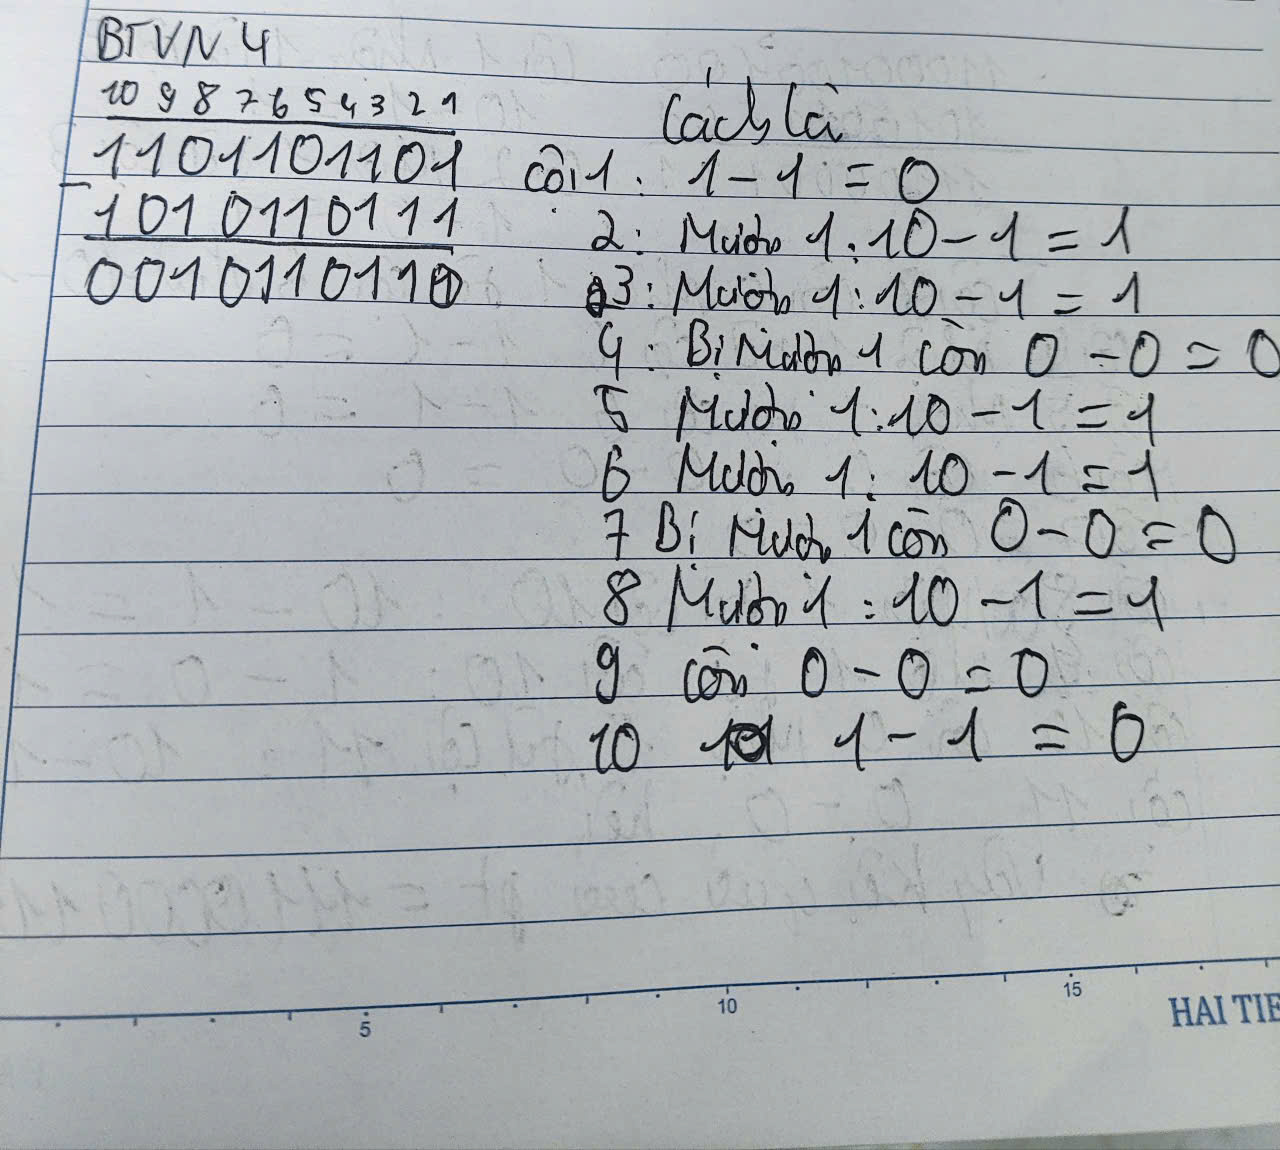 BTVN 4
10 9 8 7 6 5 4 3 2 1
1101101101
-
1010110111
0010110110
Cách là
Cột 1: 1 - 1 = 0
2: Mượn 1: 10 - 1 = 1
3: Mượn 1: 10 - 1 = 1
4: Bị Mượn 1 còn 0 - 0 = 0
5 Mượn 1: 10 - 1 = 1
6 Mượn 1: 10 - 1 = 1
7 Bị Mượn 1 còn 0 - 0 = 0
8 Mượn 1: 10 - 1 = 1
9 còn 0 - 0 = 0
10 1 - 1 = 0
5 10 15
HAI TIE